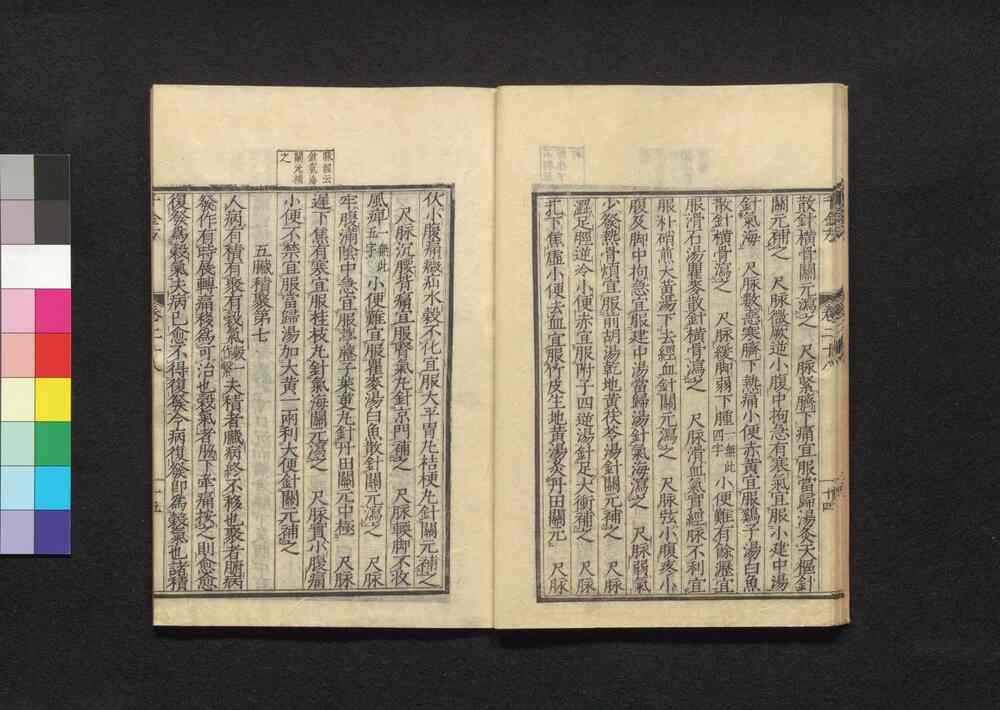 散針橫骨關元瀉之　尺脉緊臍下痛宜服當歸湯灸天樞針
關元補之　尺脉微厥逆小腹中拘急有寒氣宜服小建中湯
針氣海　尺脉數惡寒臍下熱痛小便赤黃宜服鷄子湯白魚
散針橫骨瀉之　尺脉緩脚弱下腫一無此四字小便難有餘瀝宜
服滑石湯瞿麥散針橫骨瀉之　尺脉滑血氣實經脉不利宜
服朴硝煎大黃湯下去經血針關元瀉之　尺脉弦小腹疼小
腹及脚中拘急宜服建中湯當歸湯針氣海瀉之　尺脉弱氣
少發熱骨煩宜服前胡湯乾地黃茯苓湯針關元補之　尺脉
濇足脛逆冷小便赤宜服附子四逆湯針足大衝補之　尺脉
芤下焦虛小便去血宜服竹皮生地黃湯灸丹田關元　尺脉
千金方
卷二十八
十四
伏小腹痛癥疝水穀不化宜服大平胃丸桔梗丸針關元補之
尺脉沉腰背痛宜服腎氣丸針京門補之　尺脉耎脚不收
風痺一無此五字小便難宜服瞿麥湯白魚散針關元瀉之　尺脉
牢腹滿陰中急宜服葶藶子茱萸丸針丹田關元中極　尺脉
遲下焦有寒宜服桂枝丸針氣海關元瀉之　尺脉實小腹痛
小便不禁宜服當歸湯加大黃一兩利大便針關元補之
五臟積聚第七
人病有積有聚有穀氣穀一作䅽夫積者臟病終不移也聚者腑病
發作有時展轉痛移爲可治也穀氣者脇下牽痛按之則愈愈
復發爲穀氣夫病已愈不得復發今病復發即爲穀氣也諸積
脉經云
針氣海
關元補
之
十五